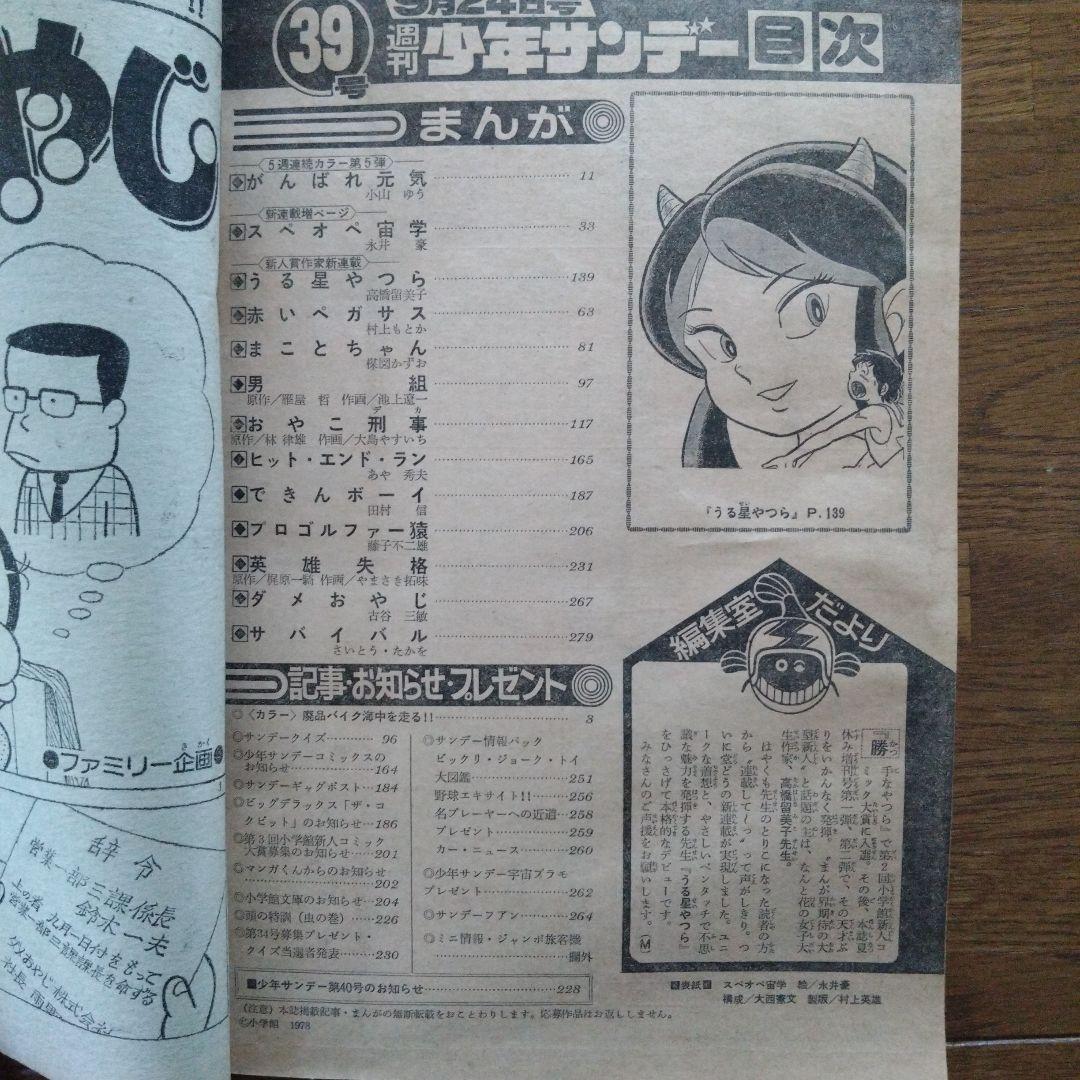 39号
9月24日号
週刊少年サンデー目次
まんが
5週連続カラー第5弾
がんばれ元気 11
小山 ゆう
新連載増ページ
スペオペ宙学 33
永井 豪
新人賞作家新連載
うる星やつら 139
高橋留美子
赤いペガサス 63
村上もとか
まことちゃん 81
楳図かずお
男組 97
原作/雁屋 哲 作画/池上遼一
おやこ刑事 117
デカ
原作/林 律雄 作画/大島やすいち
ヒット・エンド・ラン 165
あや 秀夫
できんボーイ 187
田村 信
プロゴルファー猿 206
藤子不二雄
英雄失格 231
原作/梶原一騎 作画/やまさき拓味
ダメおやじ 267
古谷 三敏
サバイバル 279
さいとう・たかを
記事・お知らせ・プレゼント
◎〈カラー〉廃品バイク海中を走る!! 3
◎サンデークイズ 96
◎少年サンデーコミックスの
お知らせ 164
◎サンデーギャグポスト 184
◎ビッグデラックス「ザ・コ
クピット」のお知らせ 186
◎第3回小学館新人コミック
大賞募集のお知らせ 201
◎マンガくんからのお知らせ
202
◎小学館文庫のお知らせ 204
◎頭の特訓(虫の巻) 226
◎第34号募集プレゼント・
クイズ当選者発表 230
◎サンデー情報パック
ビックリ・ジョーク・トイ
大図鑑 251
野球エキサイト!! 256
名プレーヤーへの近道 258
プレゼント 259
カー・ニュース 260
◎少年サンデー宇宙プラモ
プレゼント 262
◎サンデーフアン 264
◎ミニ情報・ジャンボ旅客機
欄外
■少年サンデー第40号のお知らせ 228
(注意)本誌掲載記事・まんがの無断転載をおことわりします。応募作品はお返ししません。
©小学館 1978
『うる星やつら』P.139
編集室だより
『勝手なやつら』で第2回小学館新人コ
ミック大賞に入選。その後、本誌夏
休み増刊号第一弾、第二弾で、その天才ぶ
りをいかんなく発揮。〝まんが界期待の大
型新人〟と話題の主は、なんと花の女子大
生作家、高橋留美子先生。
はやくも先生のとりこになった読者の方
から〝連載して〜っ〟って声がしきり。つ
いに堂どうの新連載が実現しました。ユニ
ークな着想と、やさしいペンタッチで不思
議な魅力を発揮する先生。『うる星やつら』
をひっさげて本格的なデビューです。
みなさんのご声援をお願いします。(M)
表紙 スペオペ宙学 絵/永井豪
構成/大西憲文 製版/村上英雄
!!
やじ
●ファミリー企画●
きかく
辞令
営業一部三課係長
鈴木一夫
上の者、九月一日付をもって
営業一部三課課長を命ずる
ダメおやじ株式会社
社長